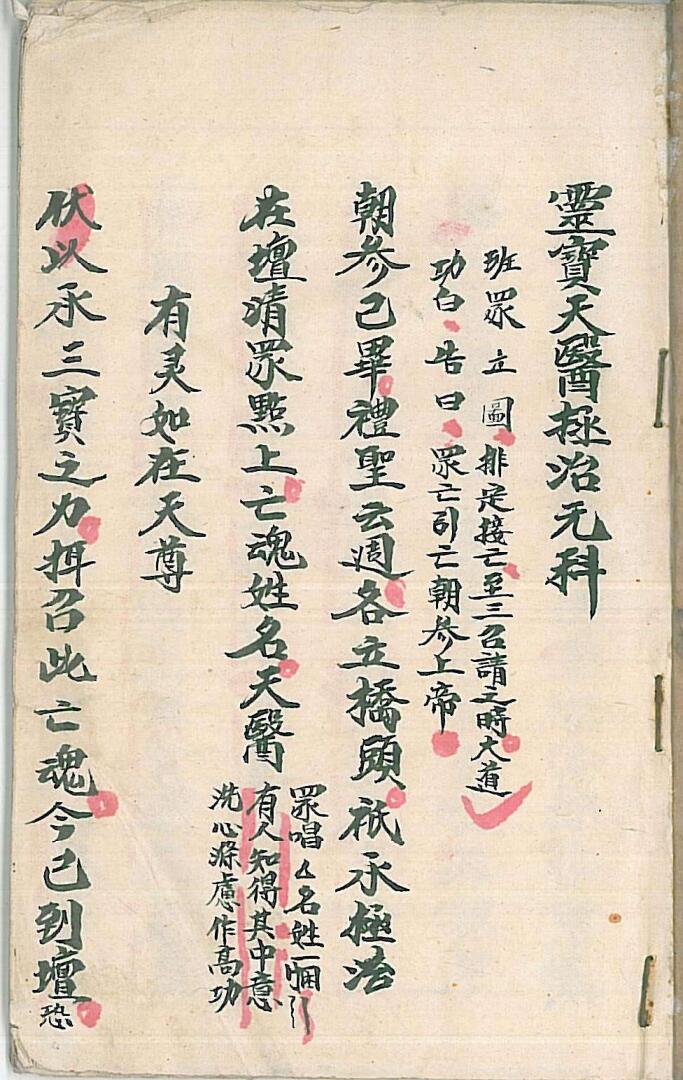 靈寶天醫拯治元科
班眾立圖排定接亡至三召請之時大道
功白告曰眾亡引亡朝參上帝
朝參己畢禮聖云週各立橋頭祇承極治
在壇清眾㸃上亡魂姓名天醫
眾唱厶名姓一
有人知得其中意
洗心滌慮作高功
有灵如在天尊
伏以承三寶之力拝召此亡魂今已到壇恐